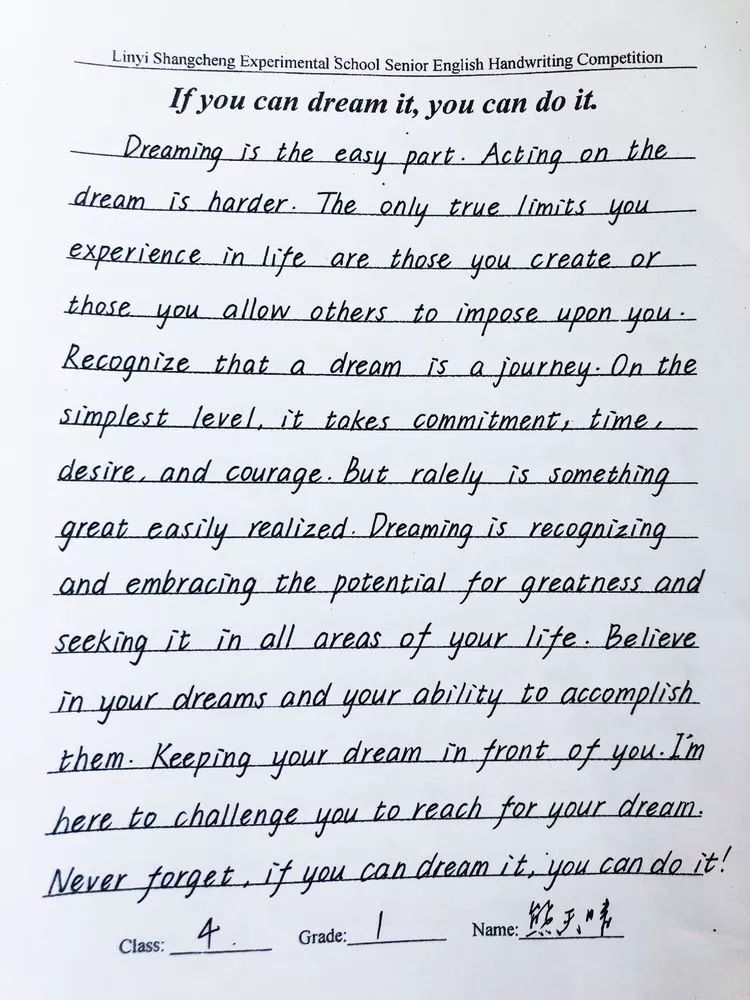 Linyi Shangcheng Experimental School Senior English Handwriting Competition
If you can dream it, you can do it.
Dreaming is the easy part. Acting on the
dream is harder. The only true limits you
experience in life are those you create or
those you allow others to impose upon you.
Recognize that a dream is a journey. On the
simplest level, it takes commitment, time,
desire, and courage. But ralely is something
great easily realized. Dreaming is recognizing
and embracing the potential for greatness and
seeking it in all areas of your life. Believe
in your dreams and your ability to accomplish
them. Keeping your dream in front of you. I'm
here to challenge you to reach for your dream.
Never forget, if you can dream it, you can do it!
Class: 4 Grade: 1 Name: